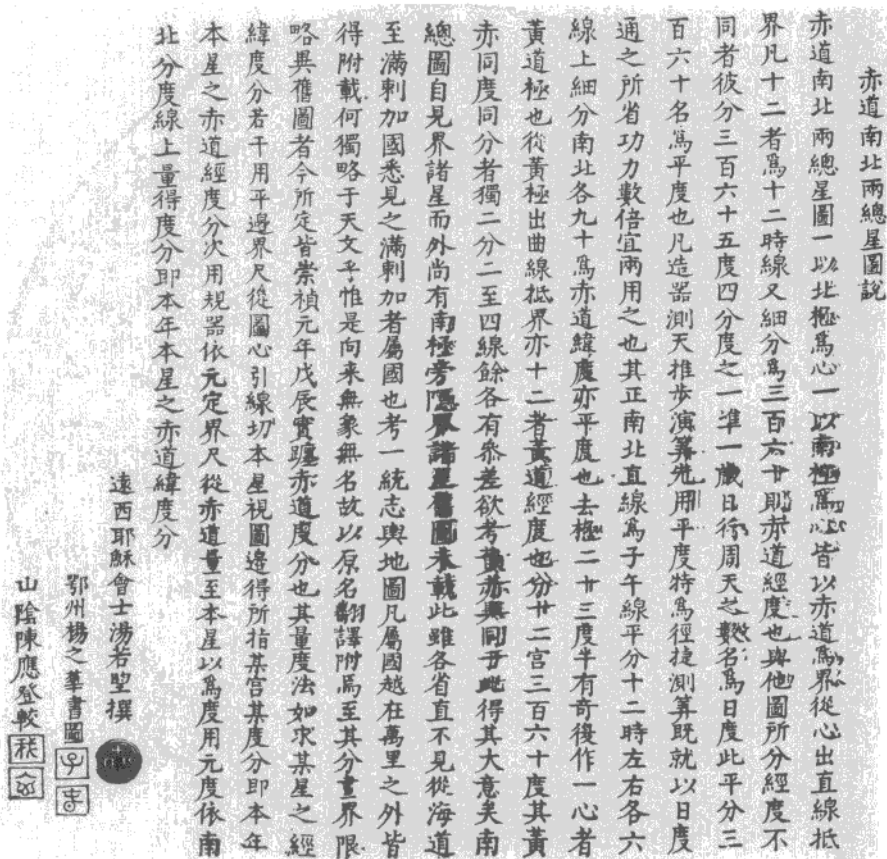 赤道南北兩總星圖說
赤道南北兩總星圖一以北極爲心一以南極爲心皆以赤道爲界從心出直線抵
界凡十二者爲十二時線又細分爲三百六十則赤道經度也與他圖所分經度不
同者彼分三百六十五度四分度之一準一歲日行周天之數名爲日度此平分三
百六十名爲平度也凡造器測天推步演算先用平度特爲徑捷測算旣就以日度
通之所省功力數倍宜兩用之也其正南北直線爲子午線平分十二時左右各六
線上細分南北各九十爲赤道緯度亦平度也去極二十三度半有奇復作一心者
黃道極也從黃極出曲線抵界亦十二者黃道經度也分十二宮三百六十度其黃
赤同度同分者獨二分二至四線餘各有叅差欲考黃赤異同于此得其大意矣南
總圖自見界諸星而外尚有南極旁隱界諸星舊圖未載此雖各省直不見從海道
至滿剌加國悉見之滿剌加者屬國也考一統志輿地圖凡屬國越在萬里之外皆
得附載何獨略于天文乎惟是向来無象無名故以原名翻譯附焉至其分畫界限
略異舊圖者今所定皆崇禎元年戊辰實躔赤道度分也其量度法如求某星之經
緯度分若干用平邊界尺從圖心引線切本星視圖邊得所指某宮某度分即本年
本星之赤道經度分次用規器依元定界尺從赤道量至本星以爲度用元度依南
北分度線上量得度分即本年本星之赤道緯度分
遠西耶穌會士湯若望撰
鄂州楊之華書圖
山陰陳應登較